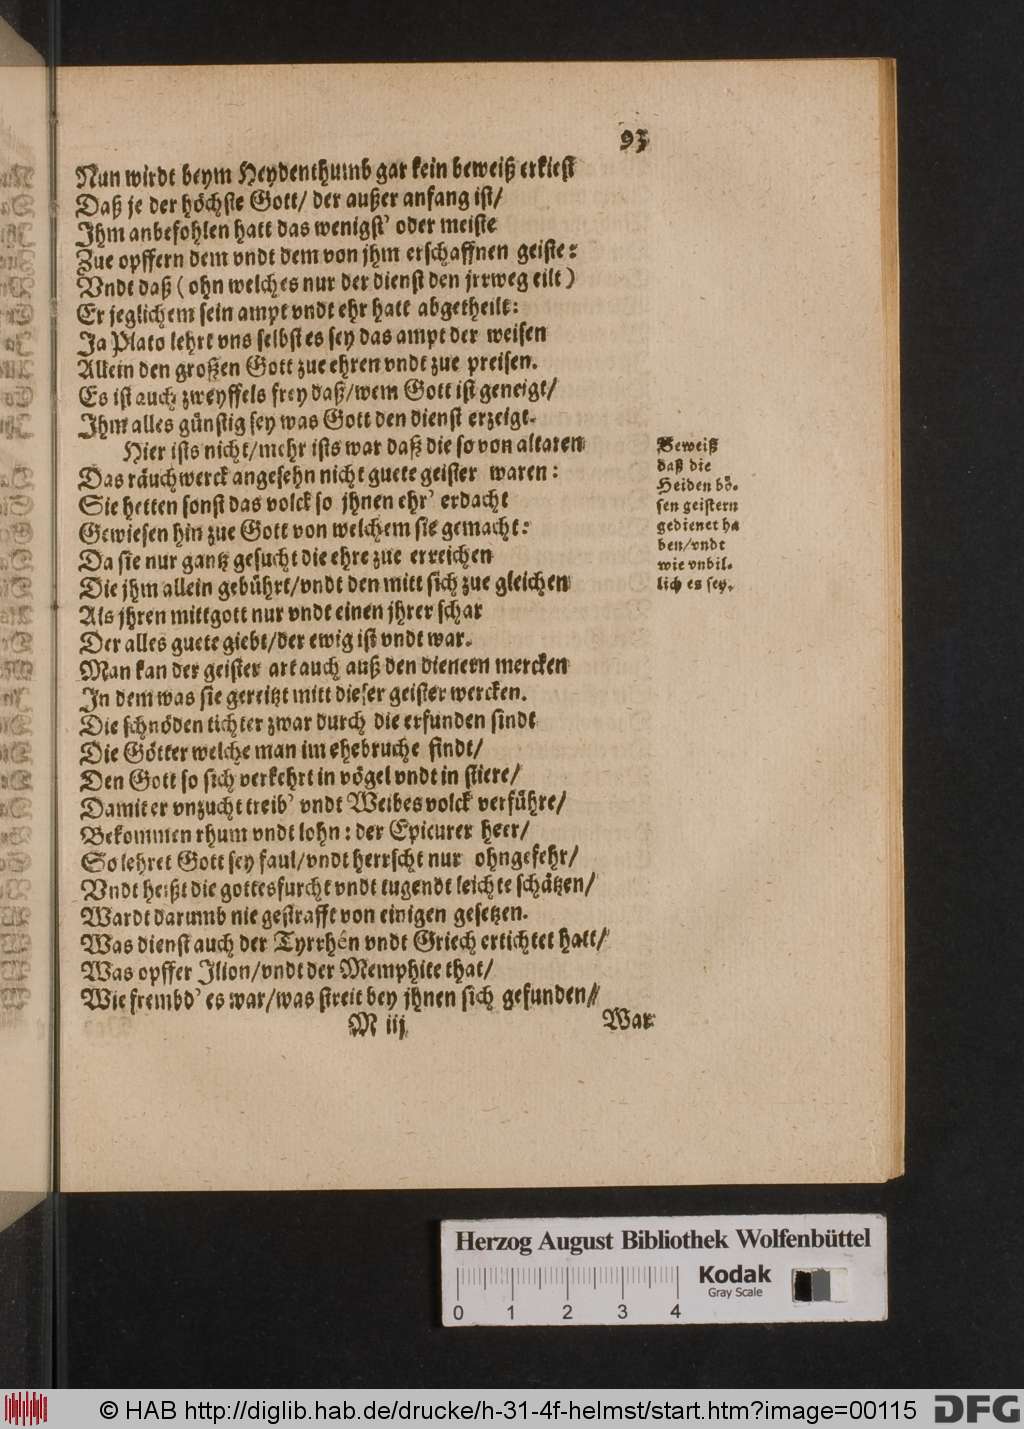 93
Nun wirdt beym Heydenthumb gar kein beweiß erkiest
Daß je der höchste Gott/ der außer anfang ist/
Ihm anbefohlen hatt das wenigst' oder meiste
Zue opffern dem vndt dem von jhm erschaffnen geiste:
Vndt daß (ohn welches nur der dienst den jrrweg eilt)
Er jeglichem sein ampt vndt ehr hatt abgetheilt:
Ja Plato lehrt vns selbst es sey das ampt der weisen
Allein den großen Gott zue ehren vndt zue preisen.
Es ist auch zweyffels frey daß/wem Gott ist geneigt/
Ihm alles günstig sey was Gott den dienst erzeigt.
Hier ists nicht/mehr ists war daß die so von altaren
Das räuchwerck angesehn nicht guete geister waren:
Sie hetten sonst das volck so jhnen ehr' erdacht
Gewiesen hin zue Gott von welchem sie gemacht:
Da sie nur gantz gesucht die ehre zue erreichen
Die jhm allein gebührt/vndt den mitt sich zue gleichen
Als jhren mittgott nur vndt einen jhrer schar
Der alles guete giebt/der ewig ist vndt war.
Man kan der geister art auch auß den dienern mercken
In dem was sie gereitzt mitt dieser geister wercken.
Die schnöden tichter zwar durch die erfunden sindt
Die Götter welche man im ehebruche findt/
Den Gott so sich verkehrt in vögel vndt in stiere/
Damit er vnzucht treib' vndt Weibesvolck verführe/
Bekommen rhum vndt lohn: der Epicurer heer/
So lehret Gott sey faul/vndt herrscht nur ohngefehr/
Vndt heißt die gottesfurcht vndt tugendt leichte schätzen/
Wardt darumb nie gestrafft von einigen gesetzen.
Was dienst auch der Tyrrhén vndt Griech ertichtet hatt/
Was opffer Ilion/vndt der Memphite that/
Wie frembd' es war/was streit bey jhnen sich gefunden/
M iij
War
Beweiß
daß die
Heiden bö-
sen geistern
gedienet ha
ben/vndt
wie vnbil-
lich es sey.
Herzog August Bibliothek Wolfenbüttel
Kodak
Gray Scale
0 1 2 3 4
© HAB http://diglib.hab.de/drucke/h-31-4f-helmst/start.htm?image=00115
DFG